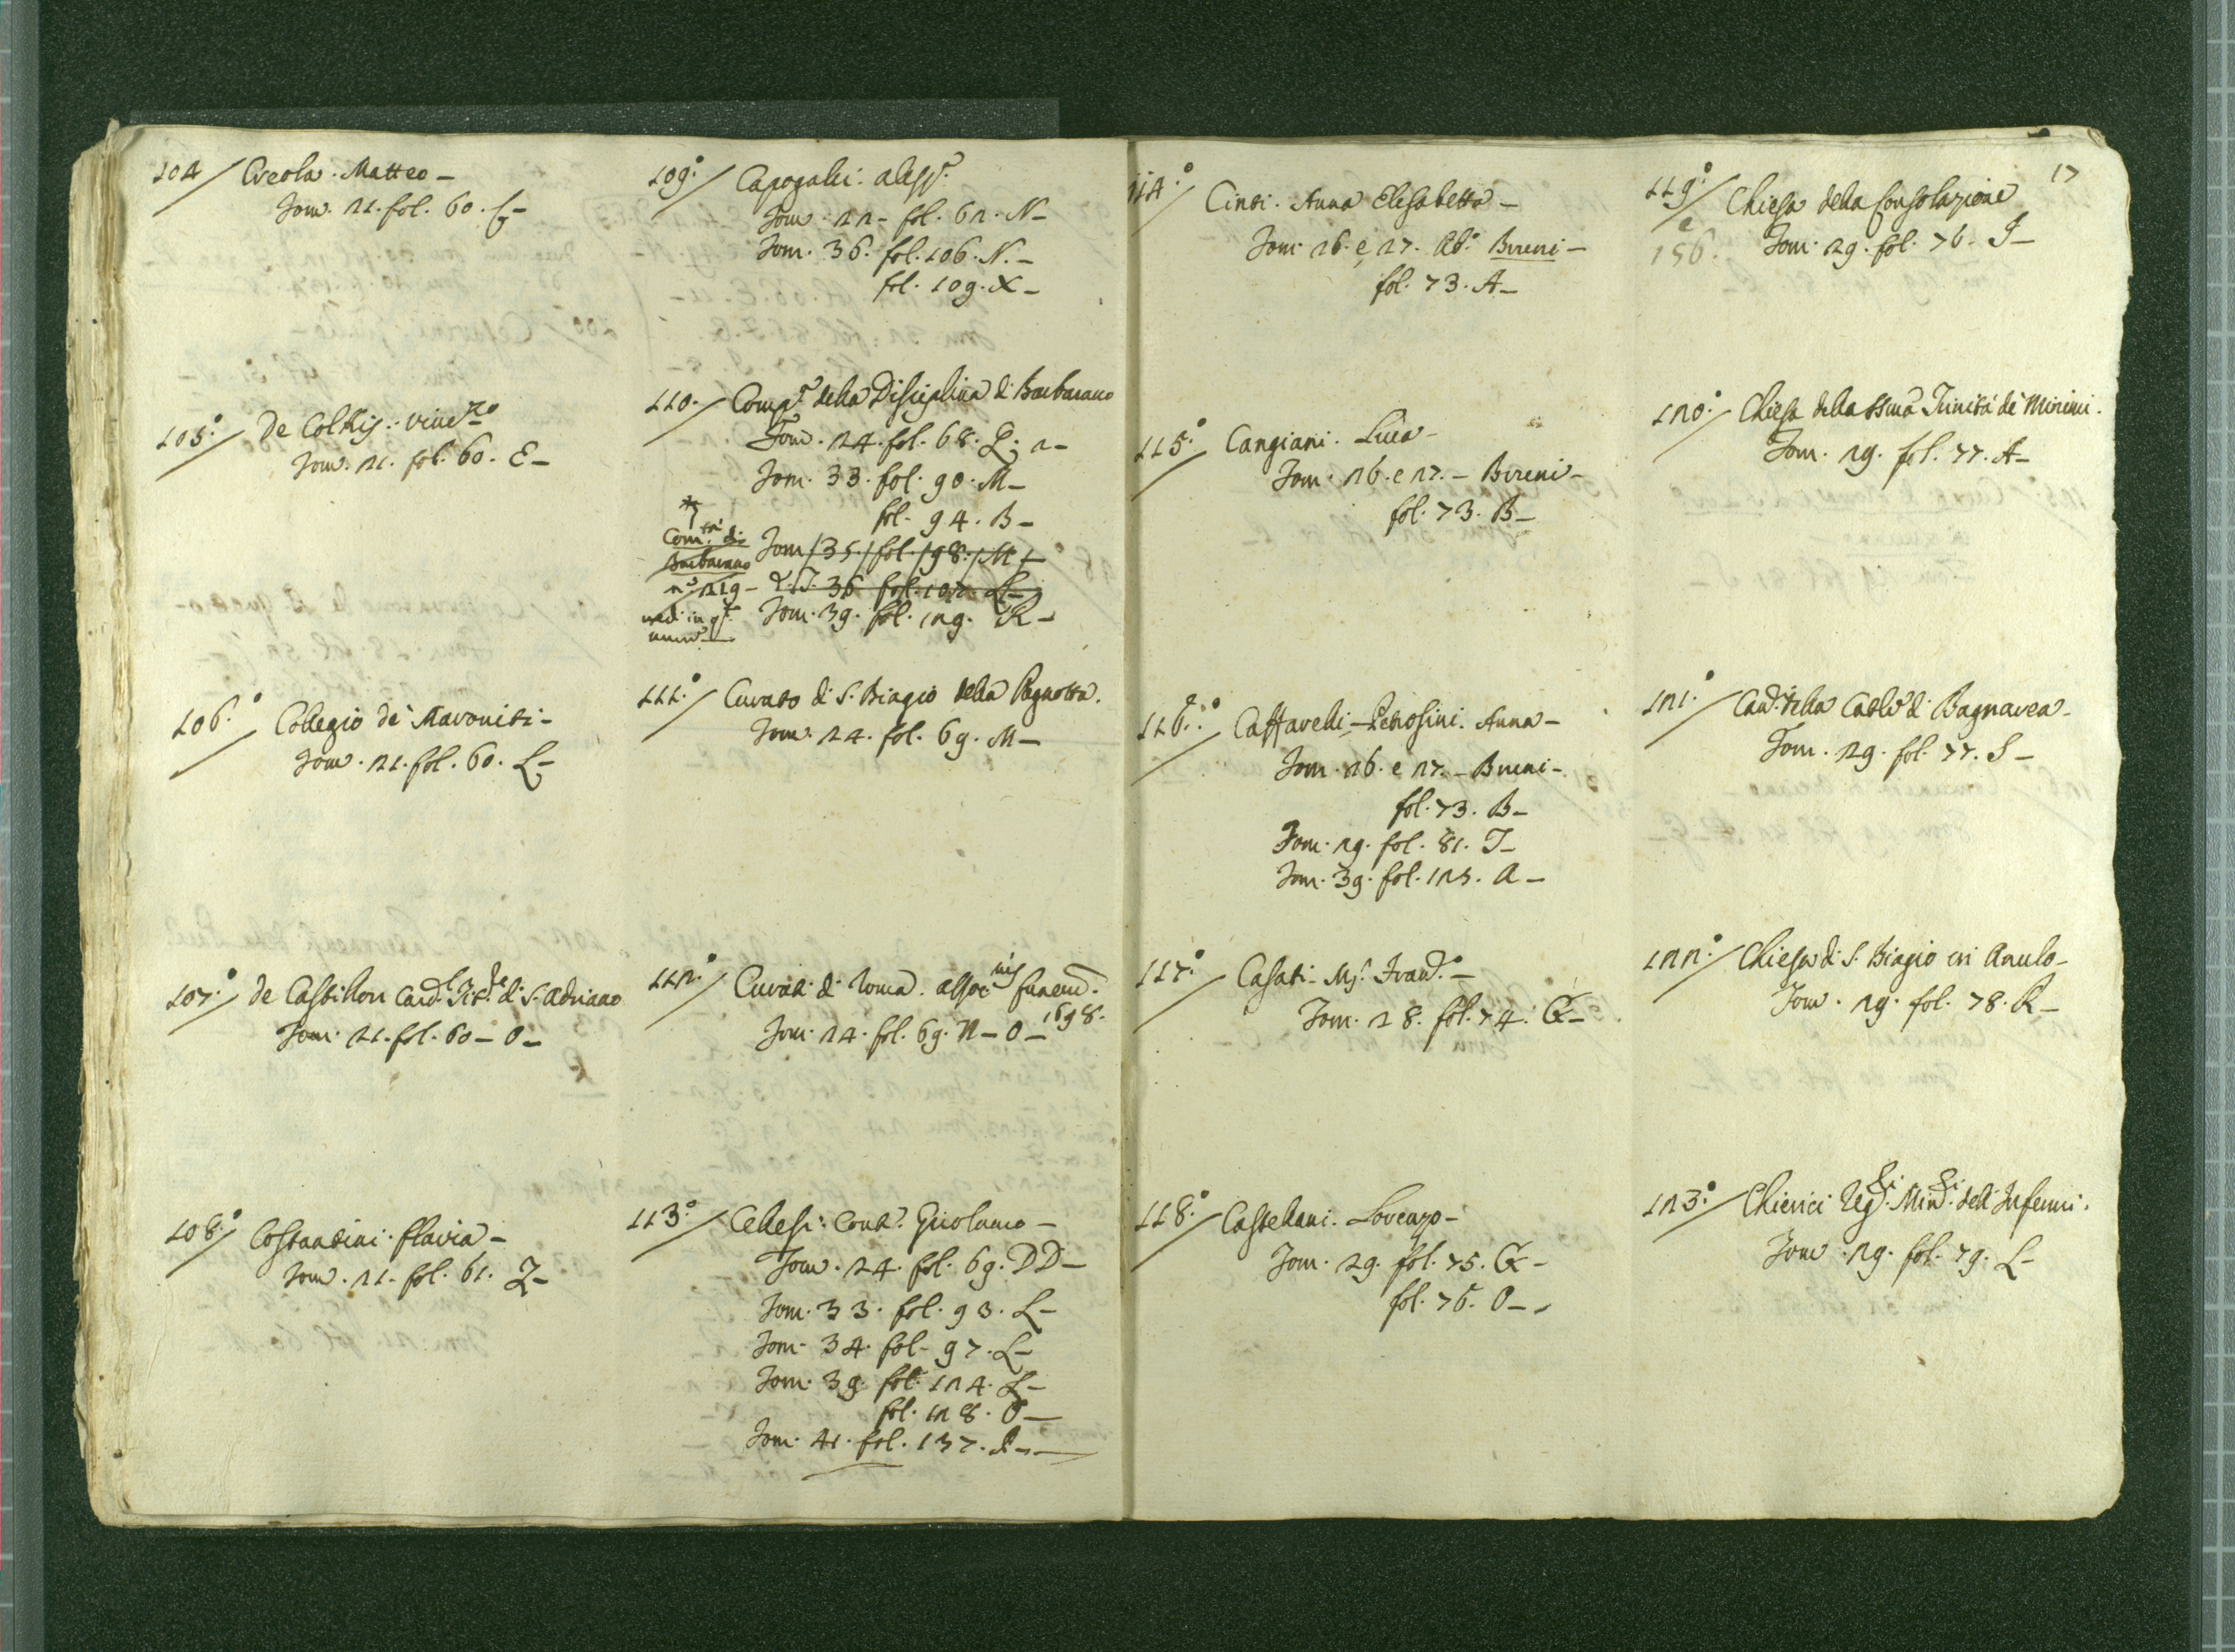 104 / Creola. Matteo -
Tom. 21. fol. 60. C -
105.° / De Colhis. Vinc.zo
Tom. 21. fol. 60. E -
106.° / Collegio de' Maroniti -
Tom. 21. fol. 60. L -
107.° / de Castillon Card.l Tit.de di S. Adriano
Tom. 21. fol. 60 - O -
108.° / Costantini. Flavia -
Tom. 21. fol. 61. Z -
109.° / Capogalli. Aless.
Tom. 22 - fol. 62. N -
Tom. 36. fol. 106. N. -
fol. 109. X -
110. / Comp. della Disciplina di Barbarano
Tom. 24. fol. 68. L; 2 -
Tom. 33. fol. 90. M -
fol. 94. B -
Com.tà di Tom. 35. fol. 98. M -
Barbarano
n.° 219 - T. 36 fol. 107. L -
ved. in q. Tom. 39. fol. 129. R -
num.
111.° / Curato di S. Biagio della Pagnotta.
Tom. 24. fol. 69. M -
112.° / Curati di Roma. assoc.nis funerū.
Tom. 24. fol. 69. N - O - 1698.
113.° / Cellesi. Cont. Girolamo -
Tom. 24. fol. 69. DD -
Tom. 33. fol. 93. L -
Tom. 34. fol. 97. L -
Tom. 39. fol. 124. L -
fol. 128. O -
Tom. 41. fol. 137. R -
17
114.° / Cinti. Anna Elisabetta -
Tom. 26. e 27. Ab.° Bireni -
fol. 73. A -
115.° / Cangiani. Luca -
Tom. 26. e 27. - Bireni -
fol. 73. B -
116.° / Caffarelli - Petrosini. Anna -
Tom. 26. e 27. - Bireni -
fol. 73. B -
Tom. 29. fol. 81. T -
Tom. 39. fol. 125. A -
117.° / Casati. Mſ. Franc.° -
Tom. 28. fol. 74. G -
118.° / Castellani. Lorenzo -
Tom. 29. fol. 75. G -
fol. 76. O -
119.° / Chiesa della Consolazione
e
156. Tom. 29. fol. 76. I -
120.° / Chiesa della SSma Trinità de' Minimi.
Tom. 29. fol. 77. A -
121.° / Cad. della Cattl. di Bagnarea -
Tom. 29. fol. 77. S -
122.° / Chiesa di S. Biagio in Anulo -
Tom. 29. fol. 78. R -
123.° / Chierici Reg.ri Min.ri dell' Infermi.
Tom. 29. fol. 79. L -